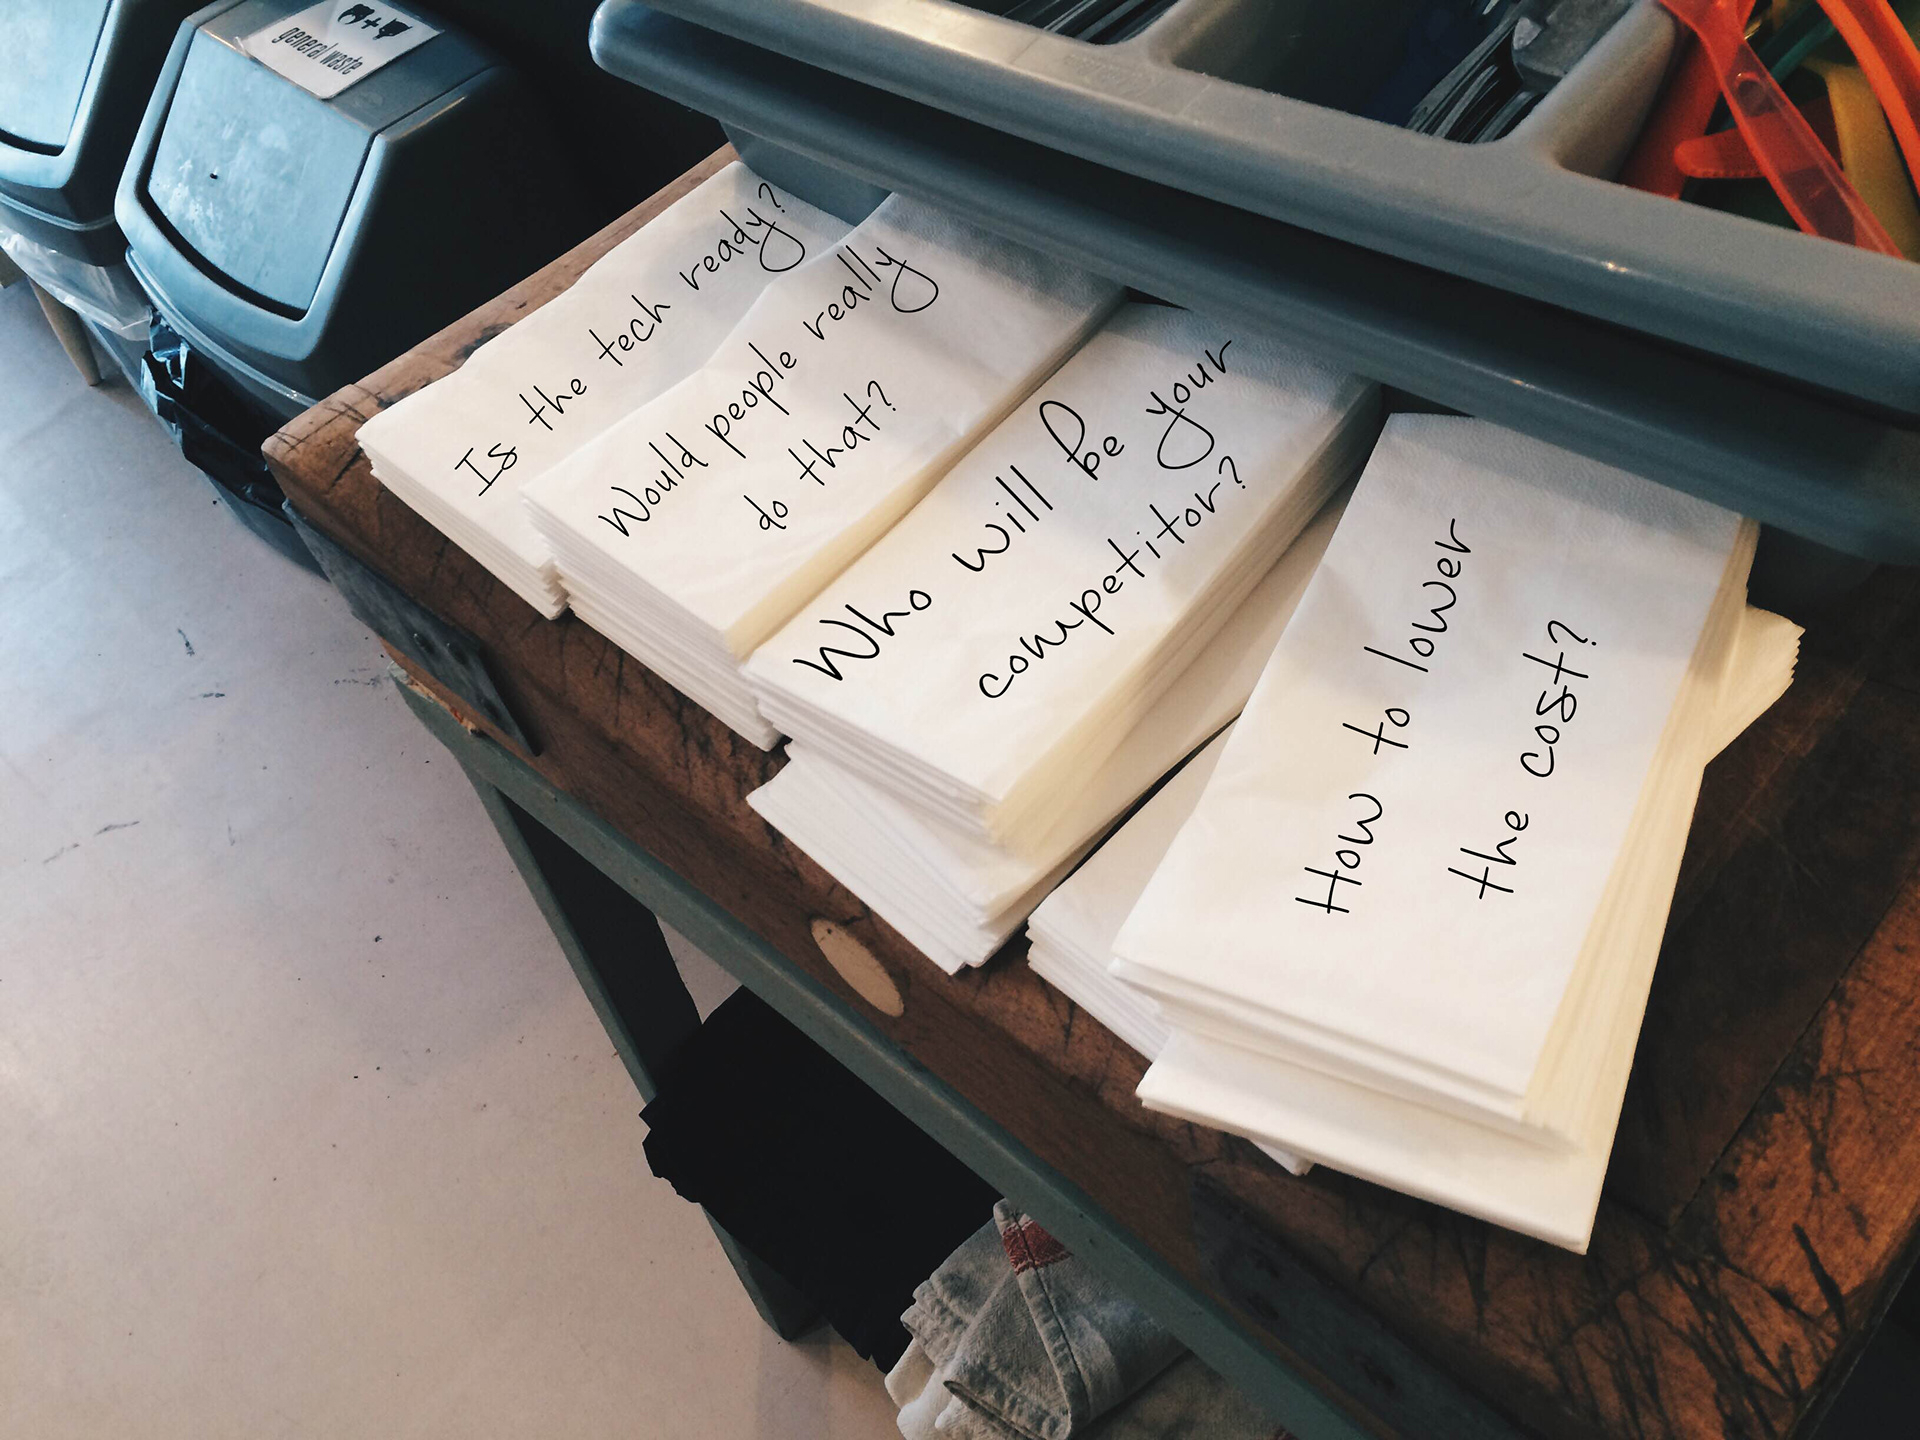 general waste
Is the tech ready?
Would people really
do that?
Who will be your
competitor?
How to lower
the cost?